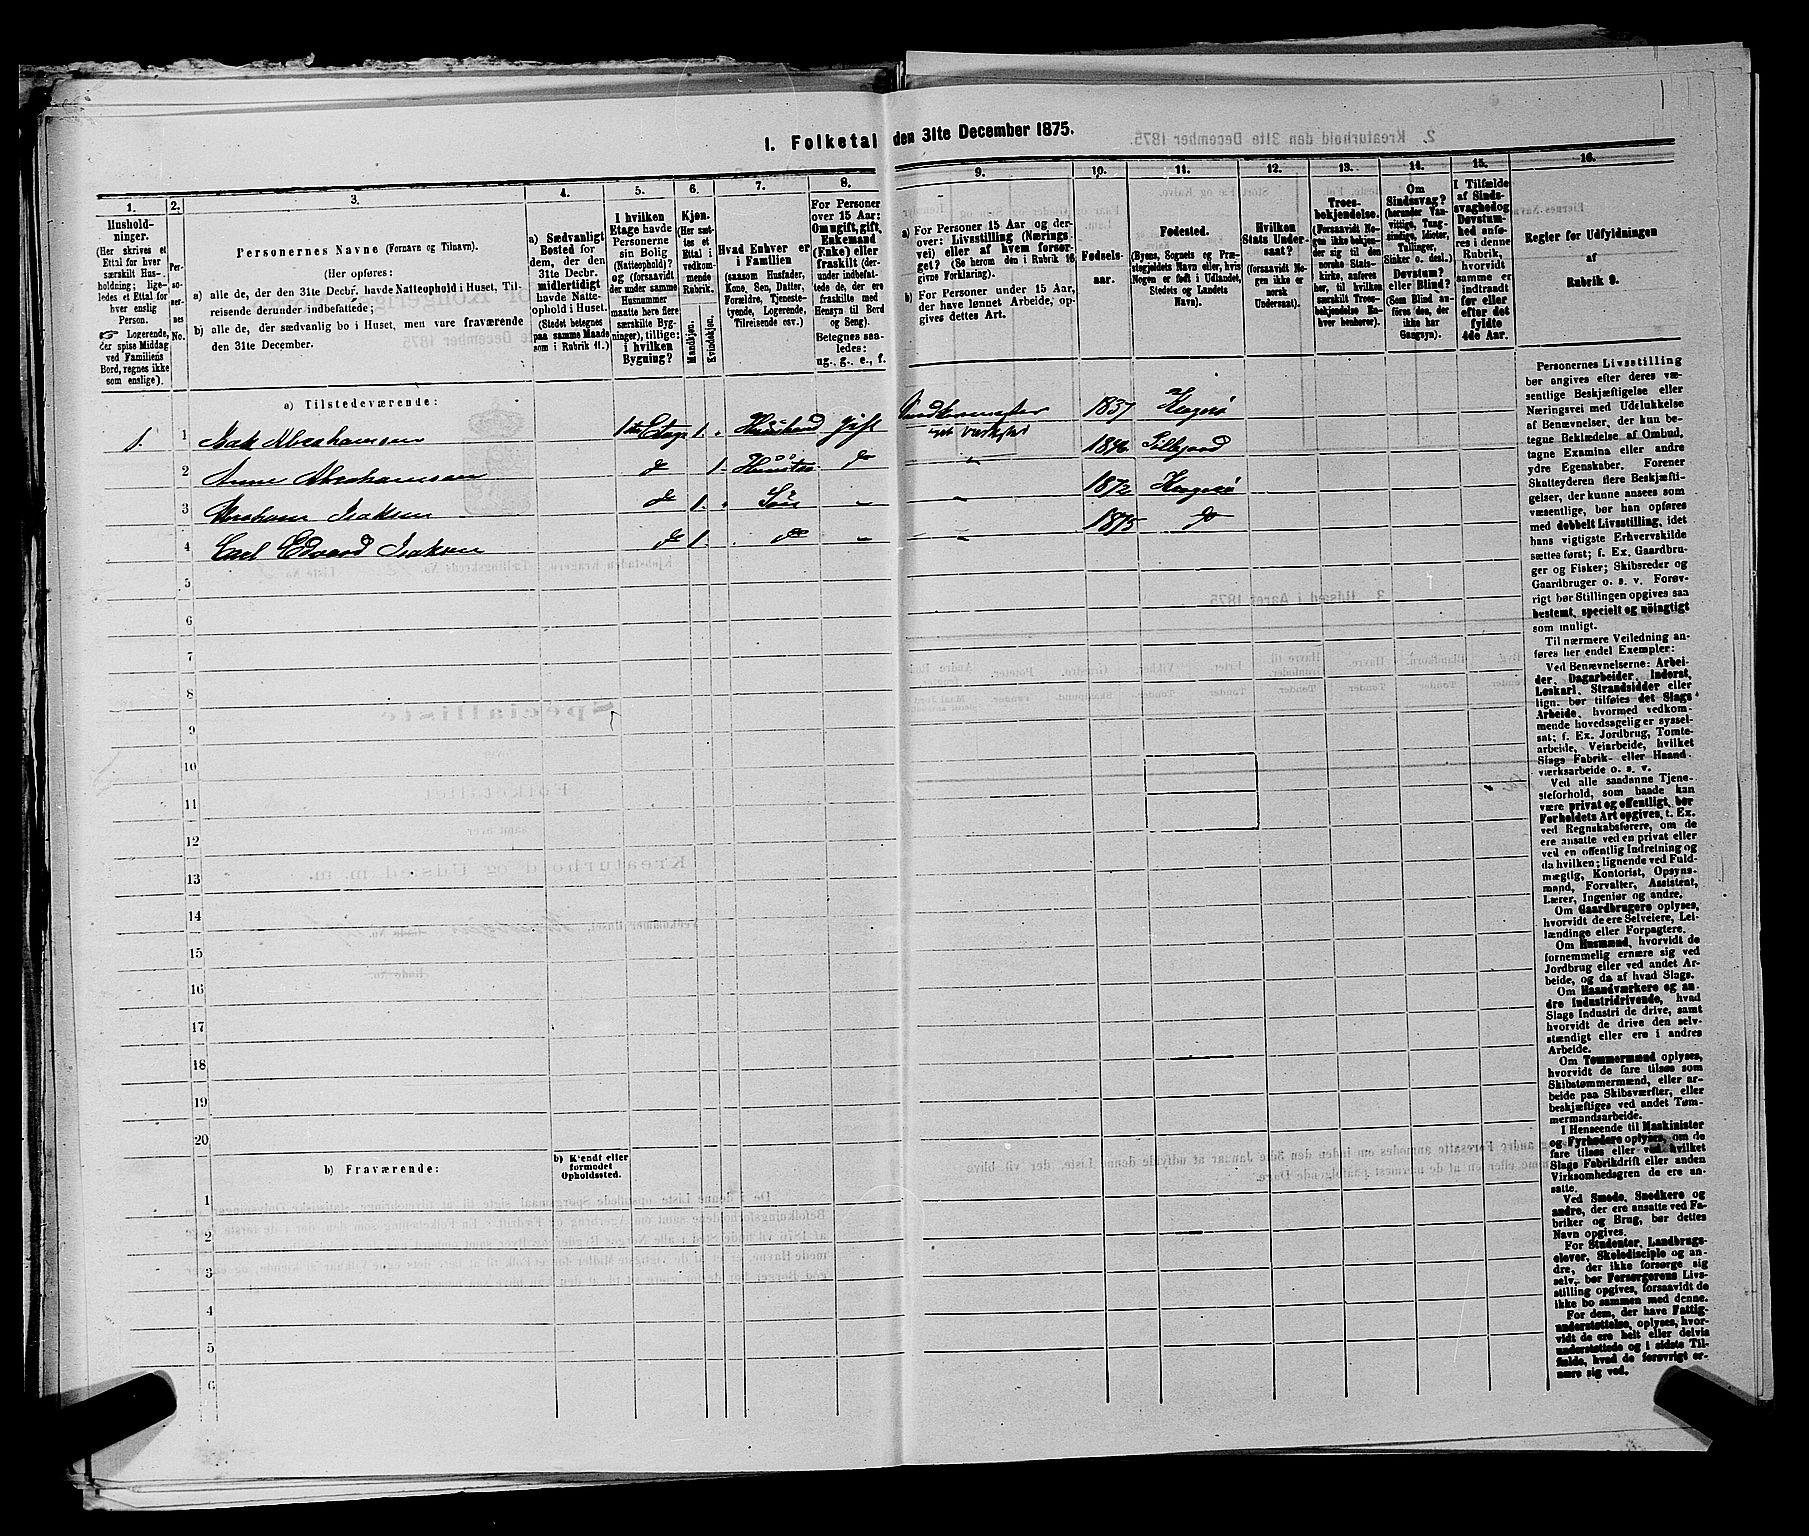 1. Folketal den 31te December 1875.
1.
2.
3.
4.
5.
6.
7.
8.
9.
10.
11.
12.
13.
14.
15.
16.
Hushold-
ninger.
(Her skrives et
Ettal for hver
særskilt Hus-
holdning; lige-
ledes et Ettal for
hver enslig
Person.
Logerende,
der spise Middag
ved Familiens
Bord, regnes ikke
som enslige).
Per-
so-
ner-
nes
No.
Personernes Navne (Fornavn og Tilnavn).
(Her opføres:
a) alle de, der den 31te Decbr. havde Natteophold i Huset, Til-
reisende derunder indbefattede;
b) alle de, der sædvanlig bo i Huset, men vare fraværende
den 31te December.
a) Sædvanligt
Bosted for
dem, der den
31te Decbr.
midlertidigt
havde Natte-
ophold i Huset.
(Stedet betegnes
paa samme Maade
som i Rubrik 11.)
I hvilken
Etage havde
Personerne
sin Bolig
(Natteophold)?
og (forsaavidt
der under samme
Husnummer
maatte høre flere
særskilte Byg-
ninger), tillige:
i hvilken
Bygning?
Kjøn.
(Her sæt-
tes et
Ettal i
vedkom-
mende
Rubrik.
Mandkjøn.
Kvindekjøn.
Hvad Enhver er
i Familien
(saasom Husfader,
Kone, Søn, Datter,
Forældre, Tjeneste-
tyende, Logerende,
Tilreisende osv.)
For Personer
over 15 Aar:
Om ugift, gift,
Enkemand
(Enke) eller
fraskilt (der-
under indbefat-
tede de, der
ere fraskilte
Hensyn til Bord
og Seng).
Betegnes saa-
ledes:
ug., g., e., f.
a) For Personer 15 Aar og der-
over: Livsstilling (Nærings-
vei) eller af hvem forsør-
get? (Se herom den i Rubrik 16
givne Forklaring).
b) For Personer under 15 Aar,
der have lønnet Arbeide, op-
gives dettes Art.
Fødsels-
aar.
Fødested.
(Byens, Sognets og Præ-
stegjeldets Navn eller, hvis
Nogen er født i Udlandet,
Stedets og Landets
Navn).
Hvilken
Stats Under-
saat?
(forsaavidt No-
gen ikke er
norsk
Undersaat).
Troes-
bekjendelse.
(Forsaavidt No-
gen ikke bekjen-
der sig til den
norske Stats-
kirke, anføres
her, til hvilken
særskilt Troes-
bekjendelse En-
hver henhører).
Om
Sindssvag?
(herunder Van-
vittige, Tung-
sindige, Idioter,
Tullinger,
Sinker o. desl.)
Døvstum?
eller Blind?
(Som Blind an-
føres den, der
ikke har
Gangsyn).
I Tilfælde
af Sinds-
svaghed og
Døvstum-
hed anfø-
res i denne
Rubrik,
hvorvidt
samme er
indtraadt
før eller
efter det
fyldte
4de Aar.
Regler for Udfyldningen
af
Rubrik 9.
a) Tilstedeværende:
1. 1 Isak Abrahamsen 1ste Etage 1. Husfad Gift 1837 Kragerø
2 Anne Abrahamsen do 1. do 1846
3 Abraham Isaksen do 1. Søn 1872 Kragerø
4 Carl Edvard Isaksen do 1. do 1875 do
5
6
7
8
9
10
11
12
13
14
15
16
17
18
19
20
b) Fraværende:
b) Kjendt eller
formodet
Opholdssted.
1
2
3
4
5
6
Personernes Livsstilling
bør angives efter deres væ-
sentlige Beskjæftigelse eller
Næringsvei med Udelukkelse
af Benævnelser, der kun be-
tegne Beklædelse af Ombud,
tagne Examina eller andre
ydre Egenskaber. Forener
Skatteyderen flere Beskjæfti-
gelser, der kunne ansees som
væsentlige, bør han opføres
med dobbelt Livsstilling, idet
hans vigtigste Erhvervskilde
sættes først; f. Ex. Gaardbru-
ger og Fisker; Skibsreder og
Gaardbruger o. s. v. Forøv-
rigt bør Stillingen opgives saa
bestemt, specielt og nøiagtigt
som muligt.
Til nærmere Veiledning an-
føres her endel Exempler:
Ved Benævnelserne: Arbei-
der, Dagarbeider, Inderst,
Løskarl, Strandsidder eller
lign. bør tilføies det Slags
Arbeide, hvormed vedkom-
mende hovedsagelig er syssel-
sat; f. Ex. Jordbrug, Tomte-
arbeide, Veiarbeide, hvilket
Slags Fabrik- eller Haand-
værksarbeide o. s. v.
Ved alle saadanne Tjene-
steforhold, som baade kan
være privat og offentligt, bør
Forholdets Art opgives, t. Ex.
ved Regnskabsførere, om de
ere ansatte ved en privat eller
ved en offentlig Indretning og
da hvilken; lignende ved Fuld-
mægtig, Kontorist, Opsyns-
mand, Forvalter, Assistent,
Lærer, Ingeniør og andre.
Om Gaardbrugere oplyses,
hvorvidt de ere Selveiere, Lei-
lændinge eller Forpagtere.
Om Husmænd, hvorvidt de
fornemmelig ernære sig ved
Jordbrug eller ved andet Ar-
beide, og da af hvad Slags.
Om Haandværkere og an-
dre Industridrivende, hvad
Slags Industri de drive, samt
hvorvidt de drive den selv-
stændigt eller ere i andres
Arbeide.
Om Tømmermænd oplyses,
hvorvidt de fare tilsøs som
Skibstømmermænd, eller ar-
beide paa Skibsværfter, eller
beskjæftiges ved andet Tøm-
mermandsarbeide.
I Henseende til Maskinister
og Fyrbødere oplyses, om de
fare tilsøs eller ved hvilket
Slags Fabrikdrift eller anden
Virksomhedsgren de ere an-
satte.
Ved Smede, Snedkere og
andre, der ere ansatte ved Fa-
briker og Brug, bør dettes
Navn opgives.
For Studenter, Landbrugs-
elever, Skoledisciple og an-
dre, der ikke forsørge sig
selv, bør Forsørgerens Livs-
stilling opgives, forsaavidt de
ikke bo sammen med denne.
For dem, der have Fattig-
understøttelse, oplyses, hvor-
vidt de ere helt eller delvis
understøttede og i sidste Til-
fælde, hvad de forøvrigt er-
nære sig ved.